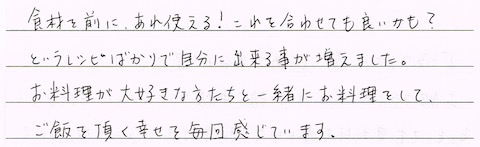 食材を前に、あれ使える！これを合わせても良いかも？
というレシピばかりで自分に出来る事が増えました。
お料理が大好きな方たちと一緒にお料理をして、
ご飯を頂く幸せを毎回感じています。